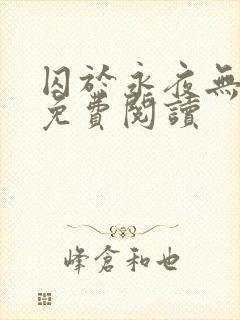 囚於永夜無
免費閱讀
峰倉和也